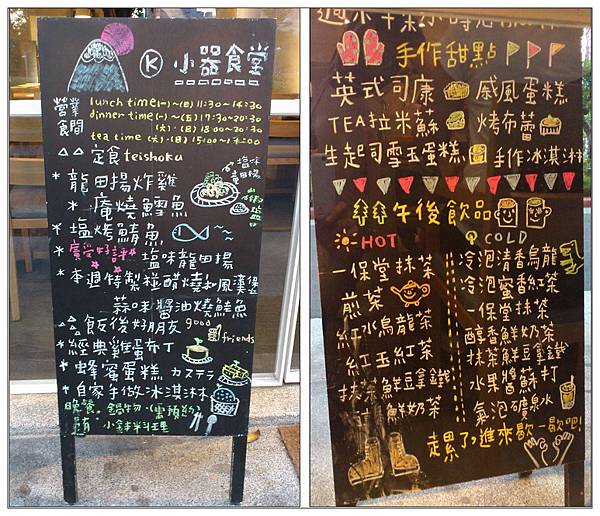 K 小器食堂
營業時間
lunch time(一)~(日) 11:30~14:30
dinner time(一)~(五) 17:30~20:30
(六)・(日) 18:00~20:30
tea time (六)・(日) 15:00~17:00
△△定食teishoku
*龍田揚炸雞
塩味龍田揚
*庵燒鱈魚
*塩烤鯖魚
*廣受好評 塩味龍田揚
*本週特製 椪醋燒和風漢堡
蒜味醬油燒鮭魚
飯後好朋友 good friends
*經典雞蛋布丁
*蜂蜜蛋糕 カステラ
*自家手做冰淇淋
晚餐 鍋物
小鉢料理
手作甜點
英式司康 戚風蛋糕
TEA拉米蘇 烤布蕾
生起司雪玉蛋糕 手作冰淇淋
午後飲品
HOT
一保堂抹茶
煎茶
紅水烏龍茶
紅玉紅茶
抹茶鮮豆拿鐵
鮮奶茶
COLD
冷泡清香烏龍
冷泡蜜香紅茶
一保堂抹茶
醇香鮮奶茶
抹茶鮮豆拿鐵
水果醬蘇打
氣泡礦泉水
走累了,進來歇一歇吧!